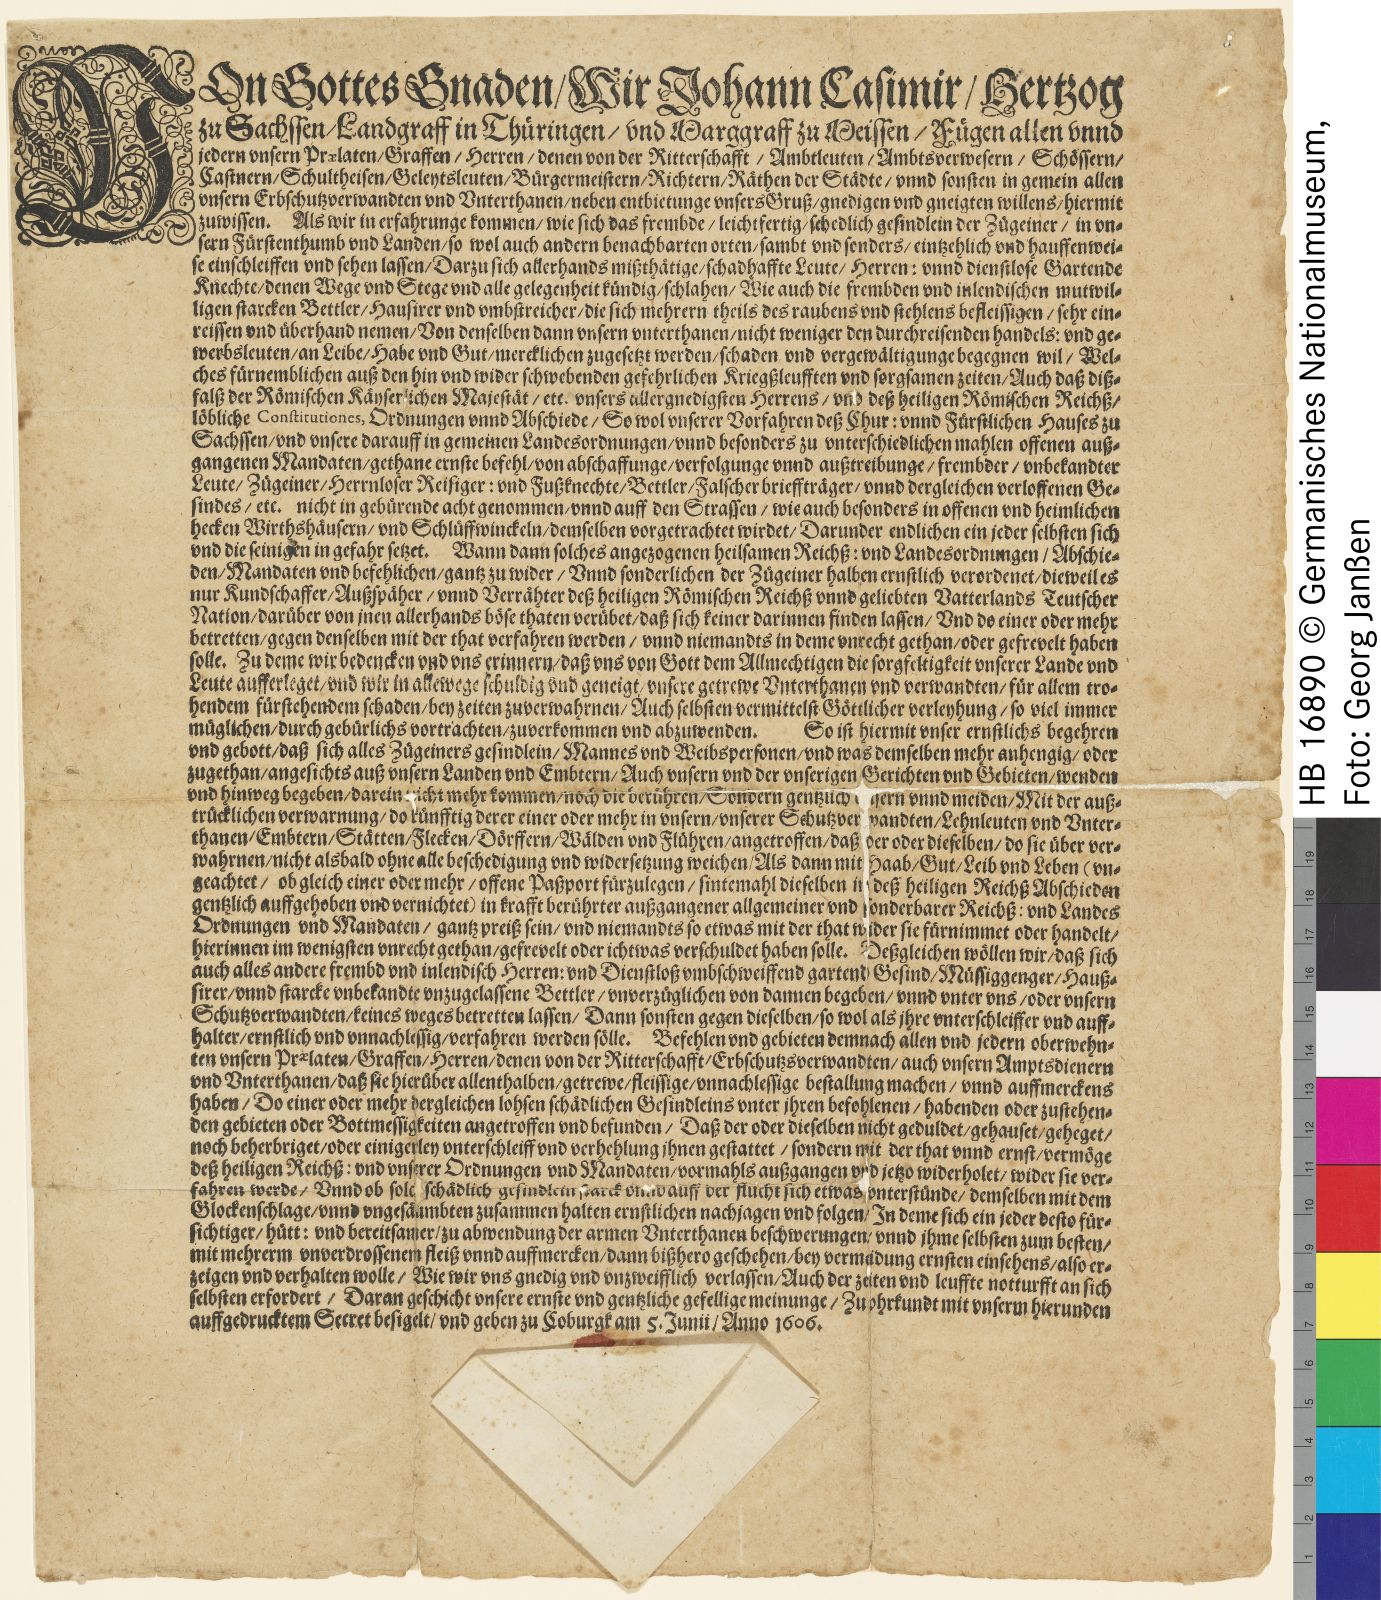 VOn Gottes Gnaden/Wir Johann Casimir/Hertzog
zu Sachssen/Landgraff in Thüringen/ vnd Marggraff zu Meissen/ Fügen allen vnnd
jedern vnsern Prælaten/Graffen/Herren/denen von der Ritterschafft/Ambtleuten/Ambtsverwesern/Schössern/
Castnern/Schultheisen/Geleytsleuten/Bürgermeistern/Richtern/Räthen der Städte/vnnd sonsten in gemein allen
vnsern Erbschutzverwandten vnd Vnterthanen/neben entbietunge vnsers Gruß/gnedigen vnd gneigten willens/hiermit
zuwissen. Als wir in erfahrunge kommen/wie sich das frembde/leichtfertig/schedlich gesindlein der Zügeiner/in vn-
sern Fürstenthumb vnd Landen/so wol auch andern benachbarten orten/sambt vnd sonders/eintzehlich vnd hauffenwei-
se einschleiffen vnd sehen lassen/Darzu sich allerhands mißthätige/schadhaffte Leute/Herren: vnnd dienstlose Gartende
Knechte/denen Wege vnd Stege vnd alle gelegenheit kündig/schlahen/Wie auch die frembden vnd inlendischen mutwil-
ligen starcken Bettler/Hausirer vnd vmbstreicher/die sich mehrern theils des raubens vnd stehlens befleissigen/sehr ein-
reissen vnd überhand nemen/Von denselben dann vnsern vnterthanen/nicht weniger den durchreisenden handels: vnd ge-
werbsleuten/an Leibe/Habe vnd Gut/mercklichen zugesetzt werden/schaden vnd vergewältigunge begegnen wil/Wel-
ches fürnemblichen auß den hin vnd wider schwebenden gefehrlichen Kriegßleufften vnd sorgsamen zeiten/Auch daß diß-
falß der Römischen Käyserlichen Majestät/etc. vnsers allergnedigsten Herrens/vnd deß heiligen Römischen Reichß/
löbliche Constitutiones, Ordnungen vnnd Abschiede/So wol vnserer Vorfahren deß Chur: vnnd Fürstlichen Hauses zu
Sachssen/vnd vnsere darauff in gemeinen Landesordnungen/vnnd besonders zu vnterschiedlichen mahlen offenen auß-
gangenen Mandaten/gethane ernste befehl/von abschaffunge/verfolgunge vnnd außtreibunge/frembder/vnbekandter
Leute/Zügeiner/Herrnloser Reisiger: vnd Fußknechte/Bettler/Falscher briefftrάger/vnnd dergleichen verloffenen Ge-
sindes/etc. nicht in gebürende acht genommen/vnnd auff den Strassen/wie auch besonders in offenen vnd heimlichen
hecken Wirthshäusern/vnd Schlüffwinckeln/demselben vorgetrachtet wirdet/Darunder endlichen ein jeder selbsten sich
vnd die seinigen in gefahr setzet. Wann dann solches angezogenen heilsamen Reichß: vnd Landesordnungen/Abschie-
den/Mandaten vnd befehlichen/gantz zu wider/Vnnd sonderlichen der Zügeiner halben ernstlich verordenet/dieweil es
nur Kundschaffer/Außspäher/vnnd Verrähter deß heiligen Römischen Reichß vnnd geliebten Vatterlands Teutscher
Nation/darüber von jnen allerhands böse thaten verübet/daß sich keiner darinnen finden lassen/Vnd do einer oder mehr
betretten/gegen denselben mit der that verfahren werden/vnnd niemandts in deme vnrecht gethan/oder gefrevelt haben
solle. Zu deme wir bedencken vnd vns erinnern/daß vns von Gott dem Allmechtigen die sorgfeltigkeit vnserer Lande vnd
Leute aufferleget/vnd wir in allewege schuldig vnd geneigt/vnsere getrewe Vnterthanen vnd verwandten/für allem tro-
hendem fürstehendem schaden/bey zeiten zuverwahrnen/Auch selbsten vermittelst Göttlicher verleyhung/so viel immer
müglichen/durch gebürlichs vortrachten/zuverkommen vnd abzuwenden. So ist hiermit vnser ernstlichs begehren
vnd gebott/daß sich alles Zügeiners gesindlein/Mannes vnd Weibspersonen/vnd was demselben mehr anhengig/oder
zugethan/angesichts auß vnsern Landen vnd Embtern/Auch vnsern vnd der vnserigen Gerichten vnd Gebieten/wenden
vnd hinweg begeben/darein nicht mehr kommen/noch die berühren/Sondern gentzlich eussern vnnd meiden/Mit der auß-
trücklichen verwarnung/do künfftig derer einer oder mehr in vnsern/vnserer Schutzverwandten/Lehnleuten vnd Vnter-
thanen/Embtern/Stätten/Flecken/Dörffern/Wälden vnd Flühren/angetroffen/daß der oder dieselben/do sie über ver-
wahrnen/nicht alsbald ohne alle beschedigung vnd widersetzung weichen/Als dann mit Haab/Gut/Leib vnd Leben (vn-
geachtet/ob gleich einer oder mehr/offene Paßport fürzulegen/sintemahl dieselben in deß heiligen Reichß Abschieden
gentzlich auffgehoben vnd vernichtet) in krafft berührter außgangener allgemeiner vnd sonderbarer Reichß: vnd Landes
Ordnungen vnd Mandaten/gantz preiß sein/vnd niemandts so etwas mit der that wider sie fürnimmet oder handelt/
hierinnen im wenigsten vnrecht gethan/gefrevelt oder ichtwas verschuldet haben solle. Deßgleichen wöllen wir/daß sich
auch alles andere frembd vnd inlendisch Herren: vnd Dienstloß vmbschweiffend gartend Gesind/Müssiggenger/Hauß-
sirer/vnnd starcke vnbekandte vnzugelassene Bettler/vnverzüglichen von dannen begeben/vnnd vnter vns/oder vnsern
Schutzverwandten/keines weges betretten lassen/Dann sonsten gegen dieselben/so wol als jhre vnterschleiffer vnd auff-
halter/ernstlich vnd vnnachlessig/verfahren werden sölle. Befehlen vnd gebieten demnach allen vnd jedern oberwehn-
ten vnsern Prælaten/Graffen/Herren/denen von der Ritterschafft/Erbschutzsverwandten/auch vnsern Amptsdienern
vnd Vnterthanen/daß sie hierüber allenthalben/getrewe/fleissige/vnnachlessige bestallung machen/vnnd auffmerckens
haben/Do einer oder mehr dergleichen lohsen schädlichen Gesindleins vnter jhren befohlenen/habenden oder zustehen-
den gebieten oder Bottmessigkeiten angetroffen vnd befunden/Daß der oder dieselben nicht geduldet/gehauset/geheget/
noch beherbriget/oder einigerley vnterschleiff vnd verhehlung jhnen gestattet/sondern mit der that vnnd ernst/vermöge
deß heiligen Reichß: vnd vnserer Ordnungen vnd Mandaten/vormahls außgangen vnd jetzo widerholet/wider sie ver-
fahren werde/Vnnd ob solch schädlich gesindlein starck vnnd auff der flucht sich etwas vnterstünde/demselben mit dem
Glockenschlage/vnnd vngesäumbten zusammen halten ernstlichen nachjagen vnd folgen/In deme sich ein jeder desto für-
sichtiger/hütt: vnd bereitsamer/zu abwendung der armen Vnterthanen beschwerungen/vnnd jhme selbsten zum besten/
mit mehrerm vnverdrossenem fleiß vnnd auffmercken/dann bißhero geschehen/bey vermeidung ernsten einsehens/also er-
zeigen vnd verhalten wolle/Wie wir vns gnedig vnd vnzweifflich verlassen/Auch der zeiten vnd leuffte notturfft an sich
selbsten erfordert/Daran geschicht vnsere ernste vnd gentzliche gefellige meinunge/Zu vhrkundt mit vnserm hierunden
auffgedrucktem Secret besigelt/vnd geben zu Coburgk am 5. Junii/Anno 1606.
HB 16890 © Germanisches Nationalmuseum,
Foto: Georg Janßen
1 2 3 4 5 6 7 8 9 10 11 12 13 14 15 16 17 18 19